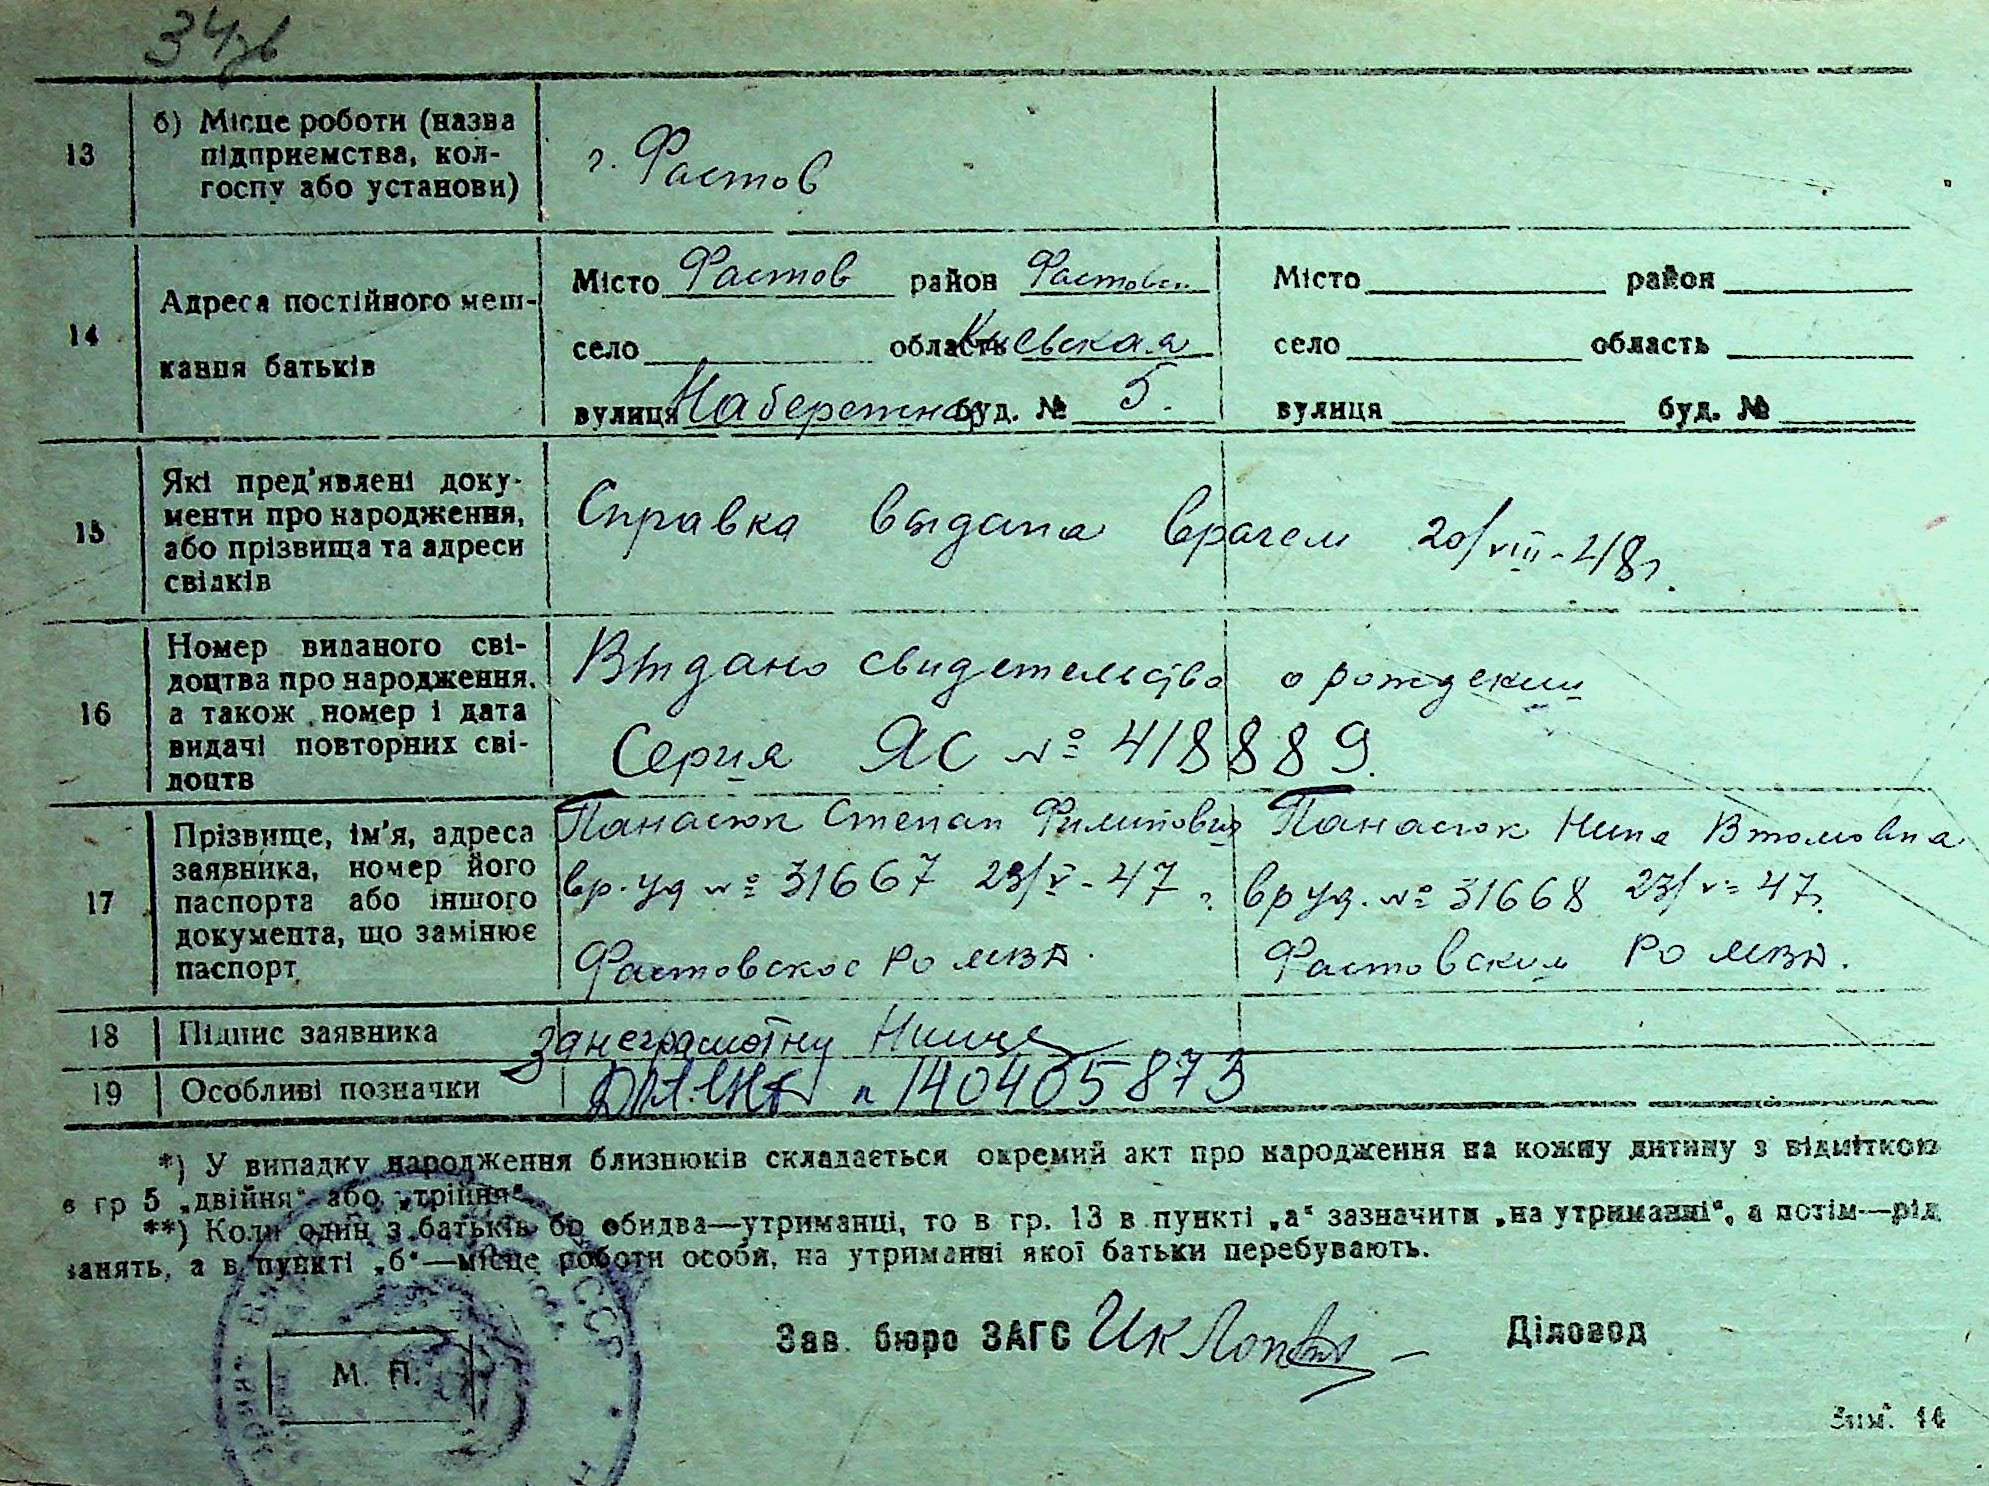 34
13
б) Місце роботи (назва
підприємства, кол-
госпу або установи)
г. Фастов
14
Адреса постійного меш-
кання батьків
Місто Фастов район Фастовск
село область Киевская
вулиця Набережная буд. № 5.
Місто район
село область
вулиця буд. №
15
Які пред'явлені доку-
менти про народження,
або прізвища та адреси
свідків
Справка выдана врачем 20/VIII-48г.
16
Номер виданого сві-
доцтва про народження,
а також номер і дата
видачі повторних сві-
доцтв
Выдано свидетельство о рождении
Серия ЯС № 418889.
17
Прізвище, ім'я, адреса
заявника, номер його
паспорта або іншого
документа, що замінює
паспорт
Панасюк Степан Филипович
вр. уд № 31667 23/V-47 г.
Фастовское РО МВД.
Панасюк Нина
вр уд. № 31668 23/V-47г.
Фастовским РО МВД.
18
Підпис заявника
за неграмотну
19
Особливі позначки
140405873
*) У випадку народження близнюків складається окремий акт про народження на кожну дитину з відміткою
в гр 5 „двійня" або „трійня"
**) Коли один з батьків бо обидва—утриманці, то в гр. 13 в пункті „а" зазначити „на утриманні", а потім—рід
занять, а в пункті „б"—місце роботи особи, на утриманні якої батьки перебувають.
Зав. бюро ЗАГС
Діловод
М. П.
ССР
Зам. 14